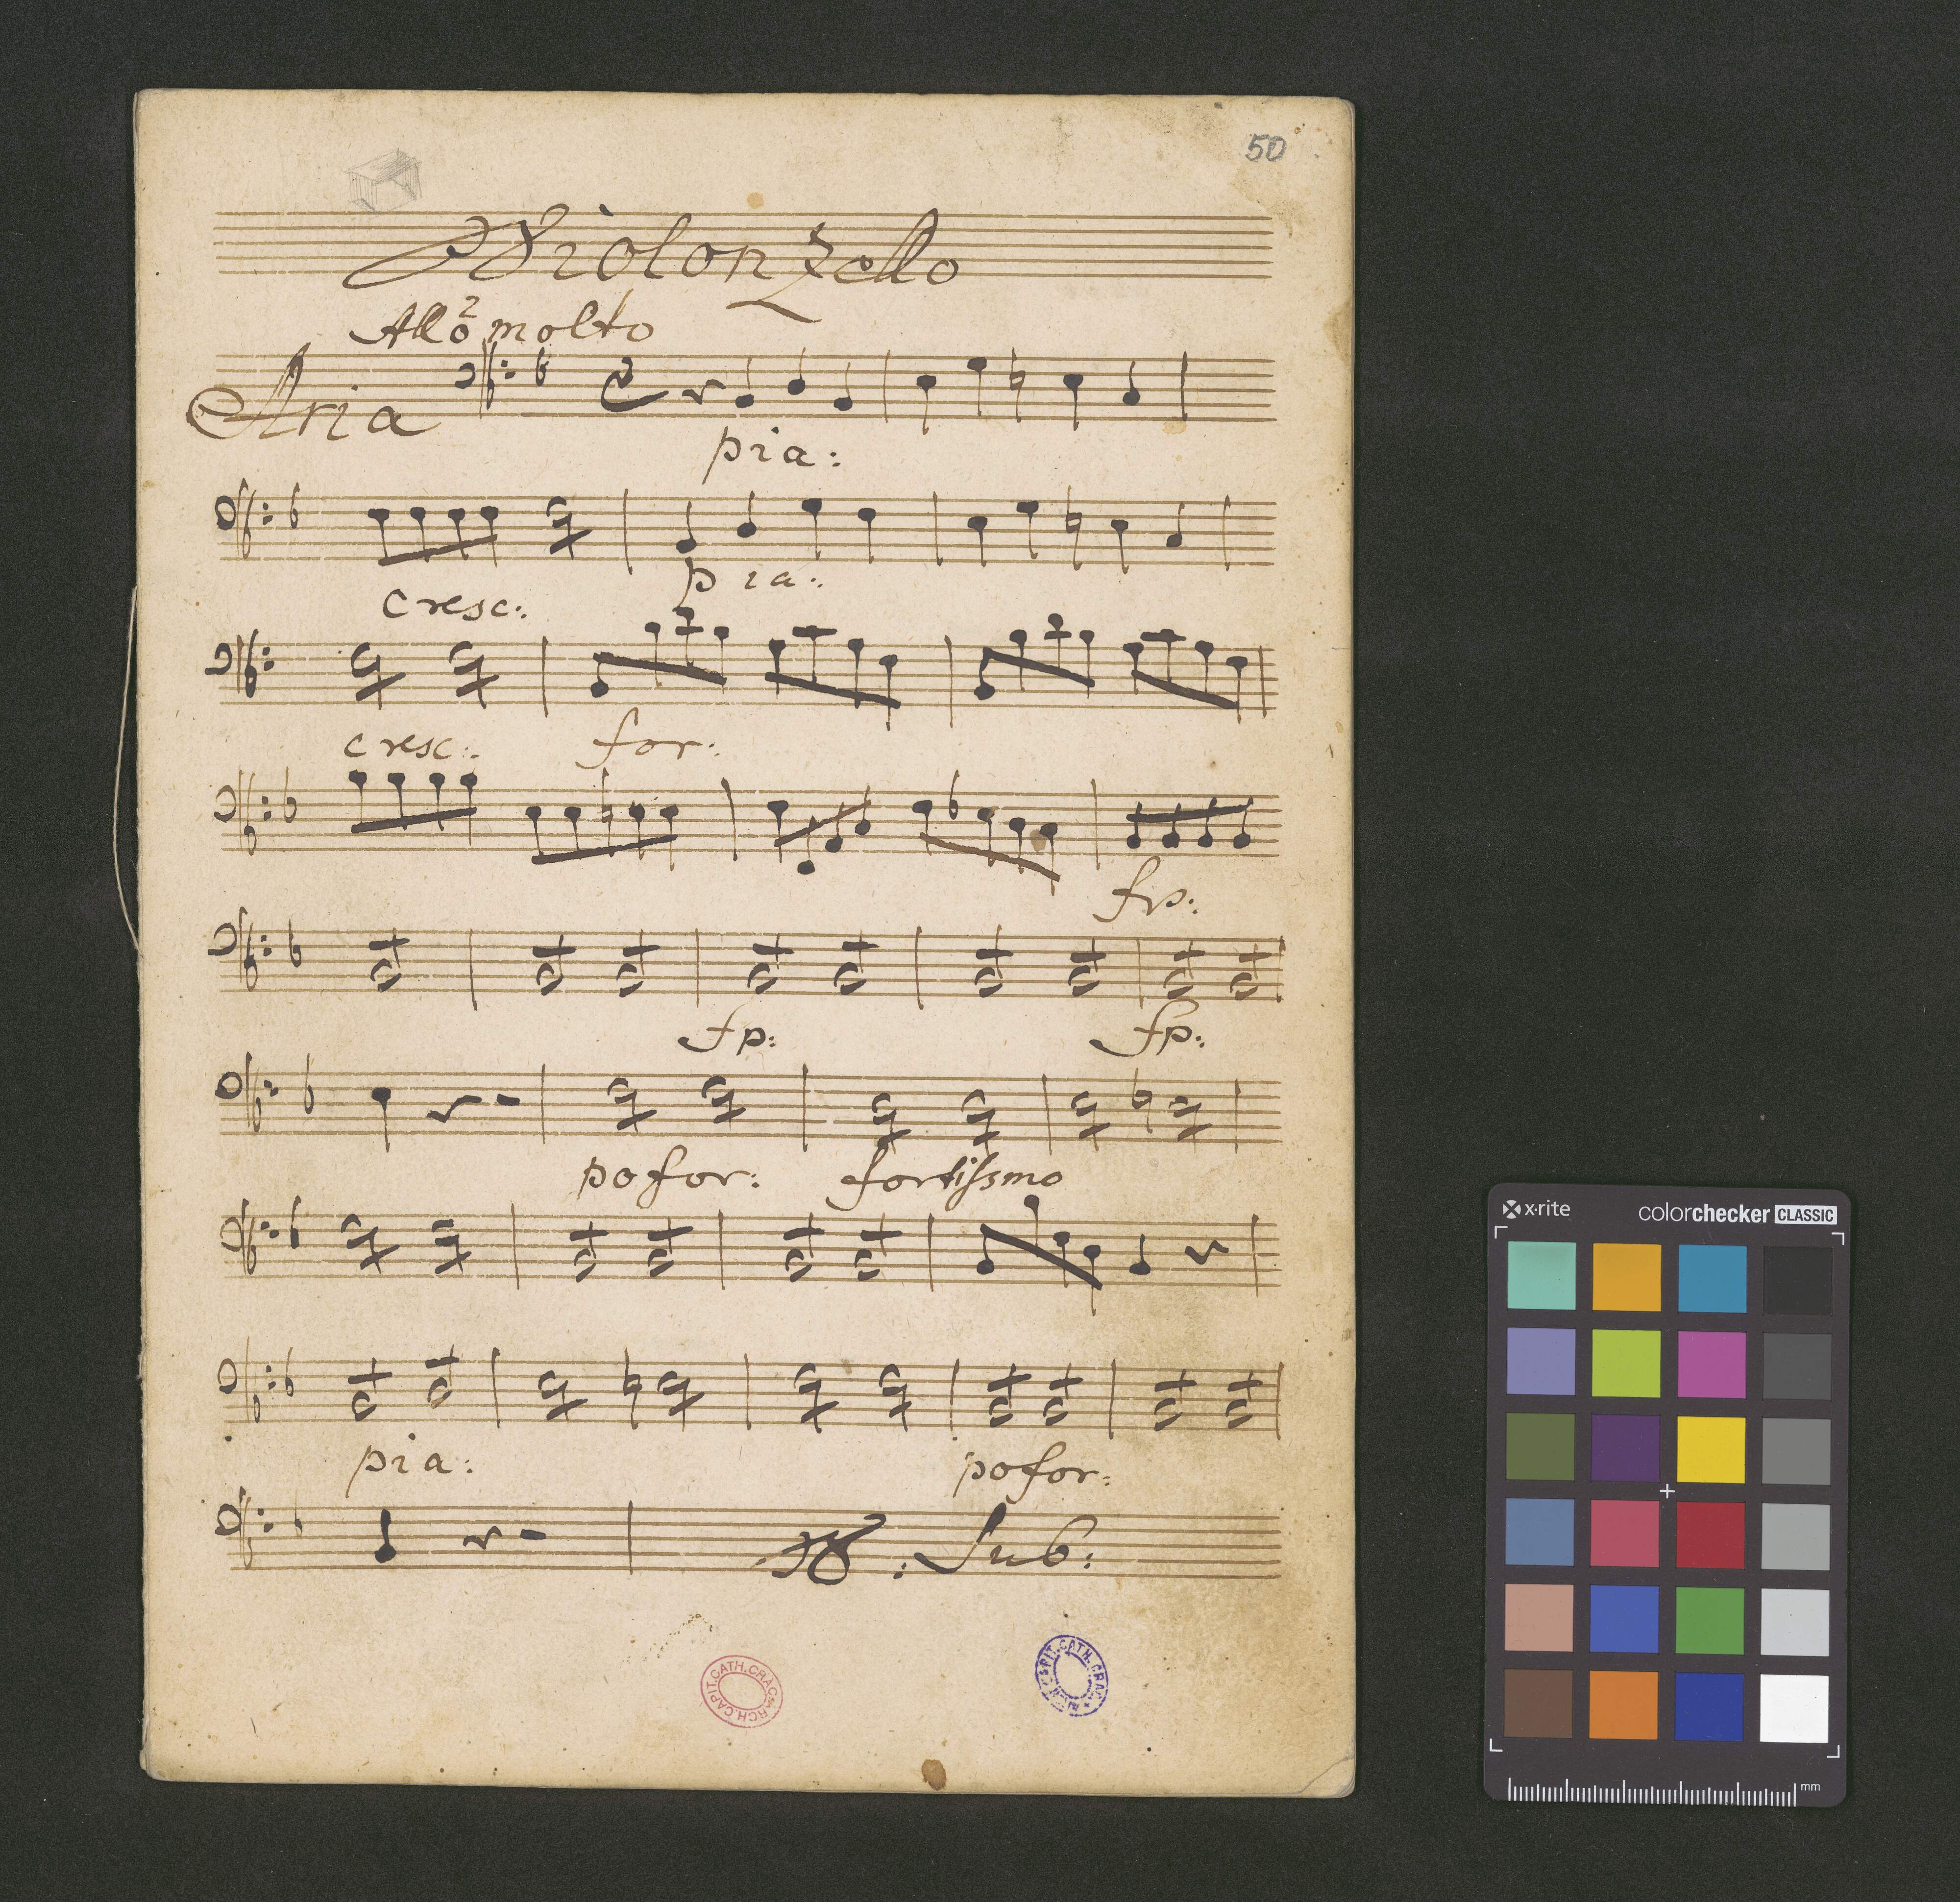 50
Violonzello
Allo molto
Aria
pia:
cresc: pia:
cresc: for:
fp:
fp: fp:
pofor: fortissmo
pia: pofor:
V: Sub:
ARCH.CAPIT.CATH.CRAC.
ARCH.CAPIT.CATH.CRAC.
x-rite colorchecker CLASSIC
mm